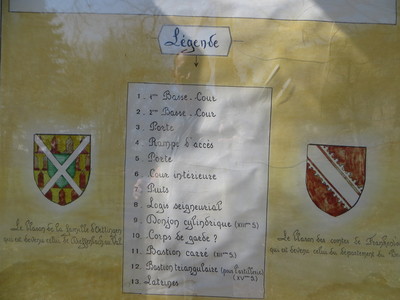 Légende
1. 1ère Basse-Cour
2. 2ème Basse-Cour
3. Porte
4. Rampe d'accès
5. Porte
6. Cour intérieure
7. Puits
8. Logis seigneurial
9. Donjon cylindrique (XIIIe S)
10. Corps de garde ?
11. Bastion carré
12. Bastion triangulaire (pour l'artillerie)
13. Latrines
Le Blason de la famille
qui est devenu celui de
Le Blason des comtes de
qui est devenu celui du département du